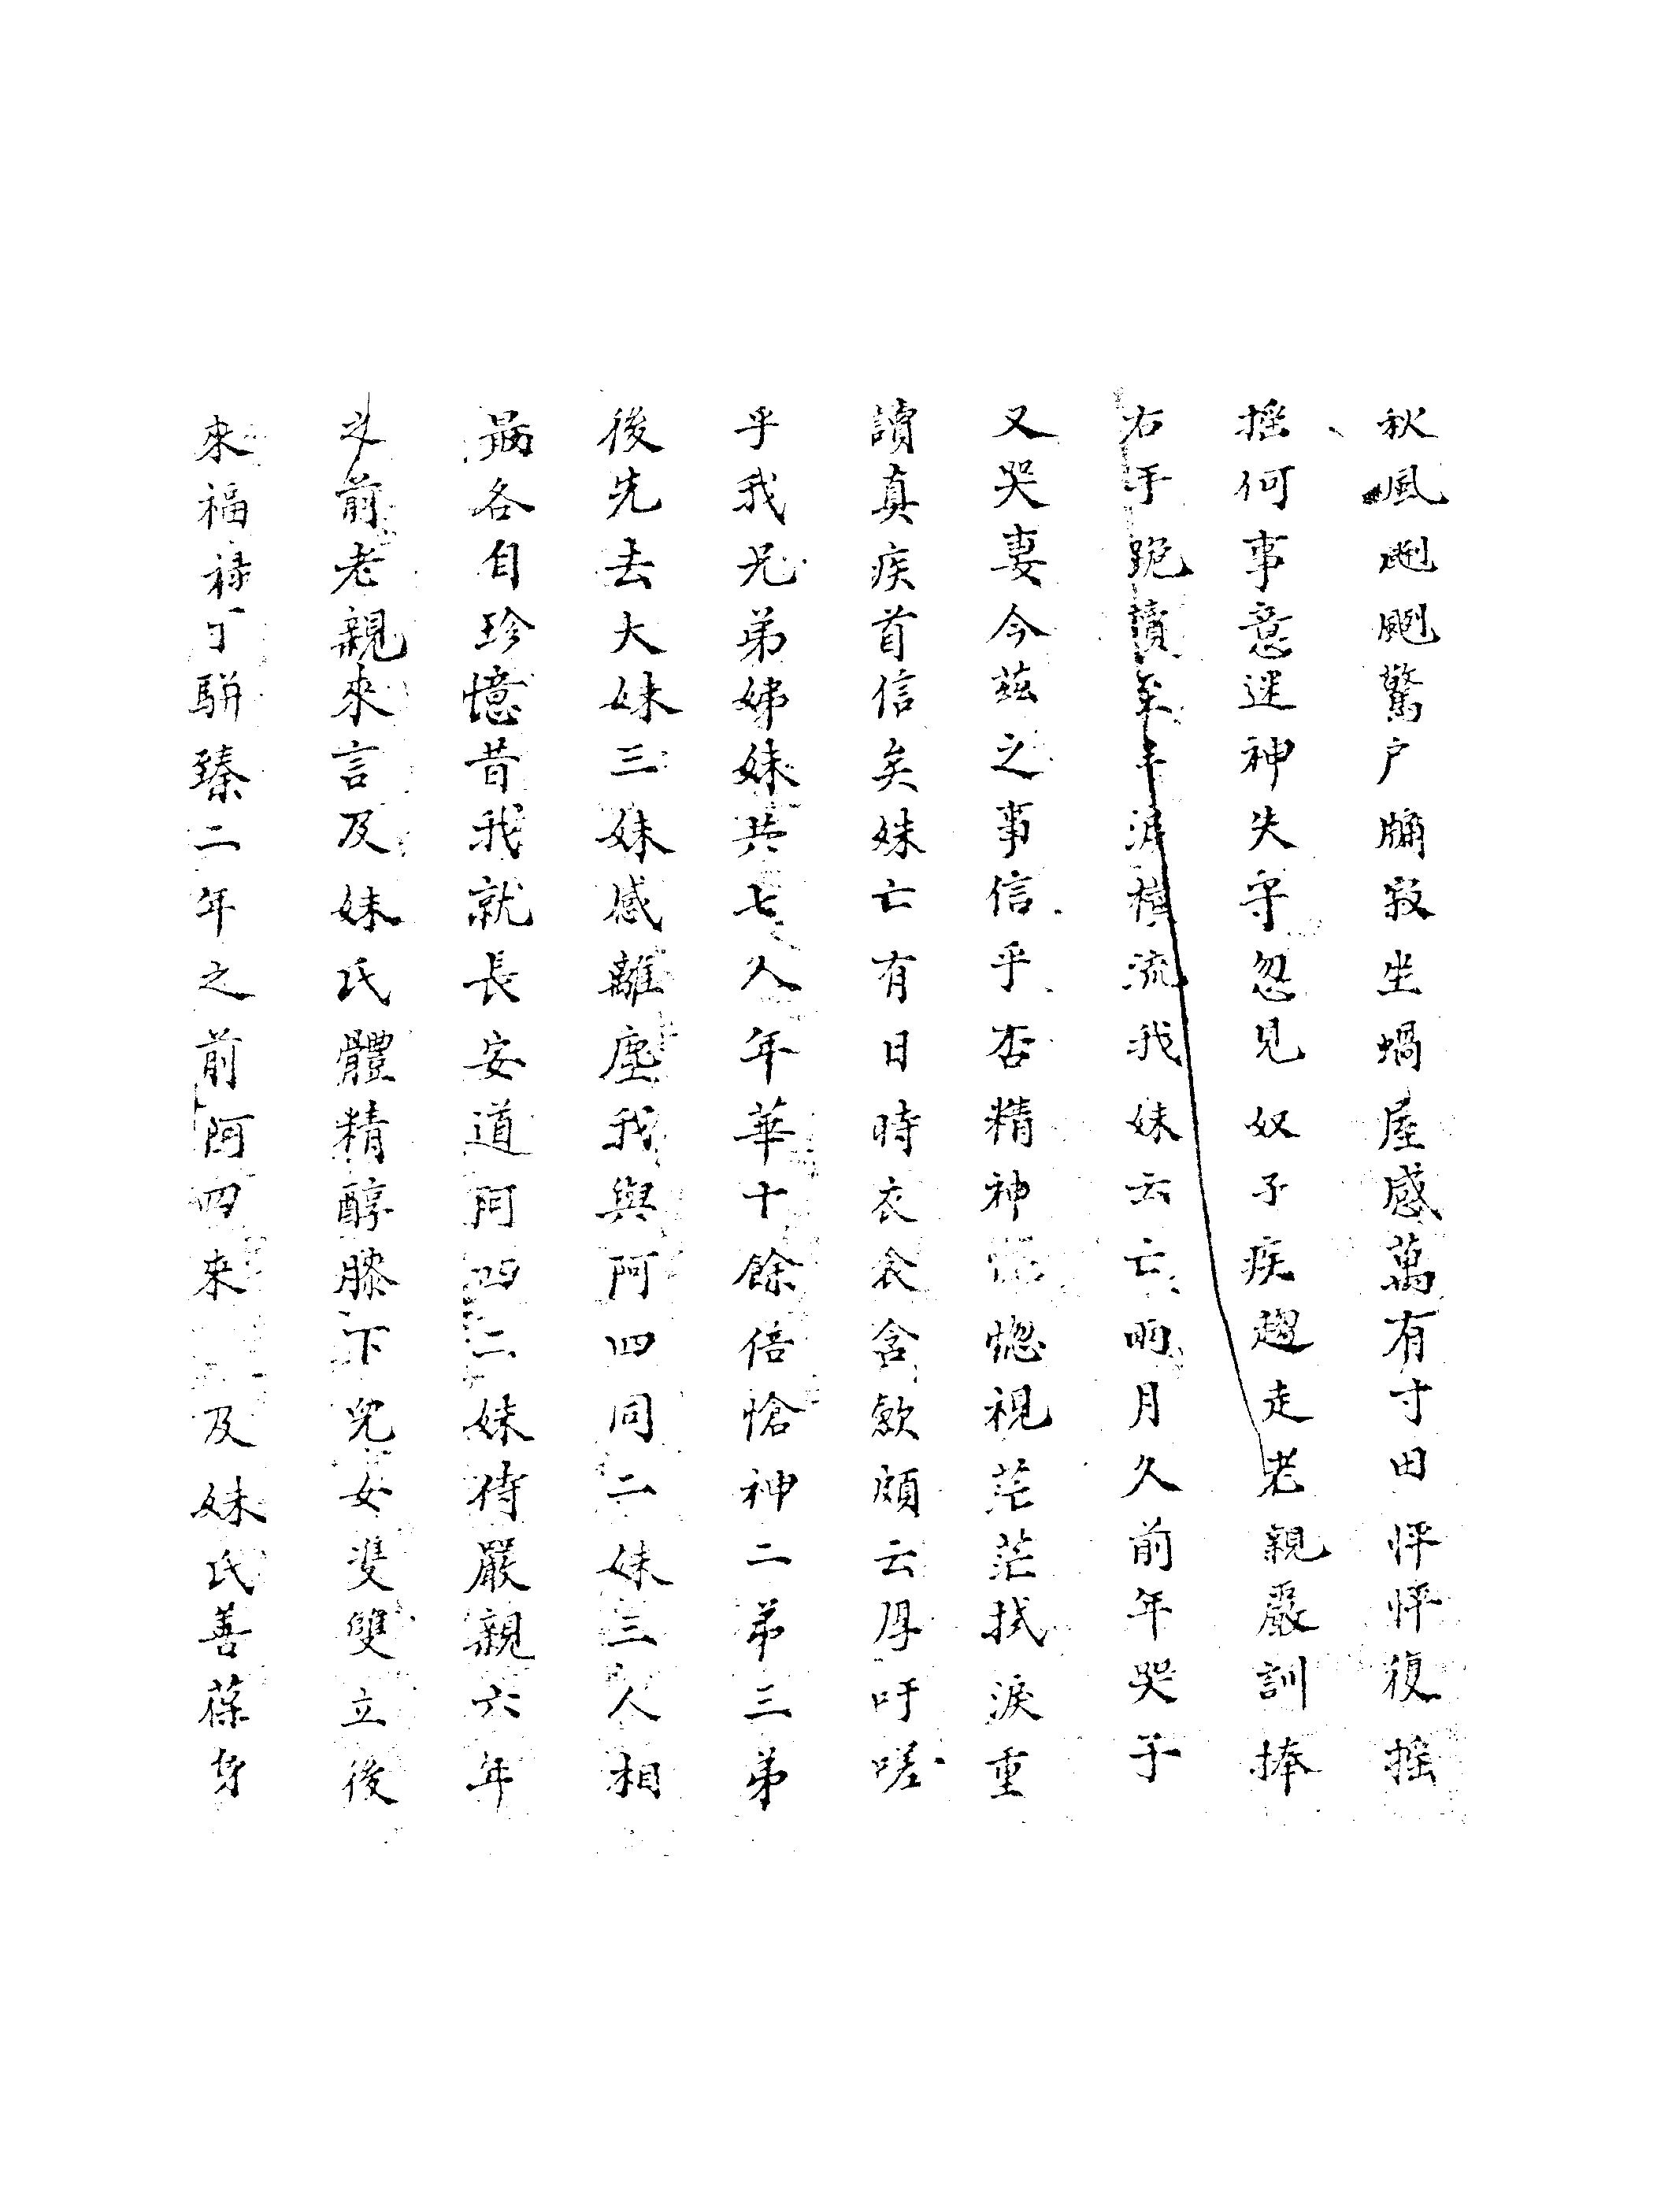 秋風颳颳驚戶牖寂坐蝸屋感萬有寸田怦怦復搖
搖何事意迷神失守忽見奴子疾趨走老親嚴訓捧
右手跪讀未半淚橫流我妹云亡兩月久前年哭子
又哭妻今茲之事信乎否精神惚視茫茫拭淚重
讀真疾首信矣妹亡有日時衣衾含歛頗云厚吁嗟
乎我兄弟姊妹共七人年華十餘倍愴神二弟三弟
後先去大妹三妹感離塵我與阿四同二妹三人相
各自珍憶昔我就長安道阿四二妹待嚴親六年
前老親來言及妹氏體精醇膝下兒女雙雙立後
來福祿丁駢臻二年之前阿四來及妹氏善葆身